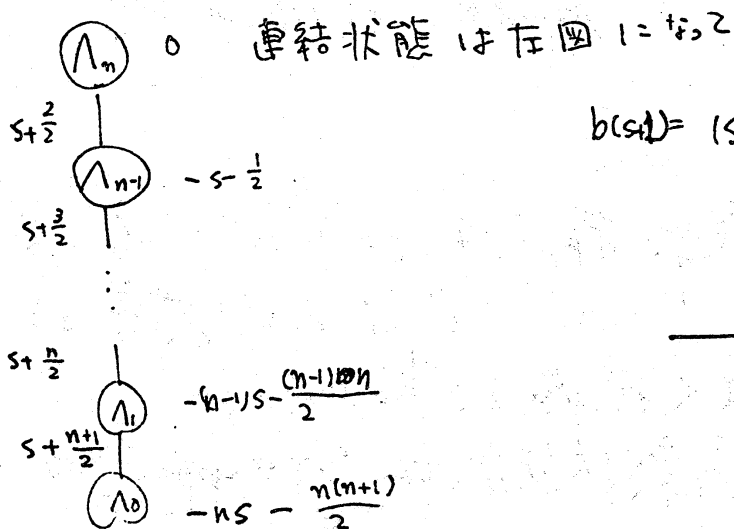 Λn 0 連結状態は左図になって
s+2/2 b(s+1)= (s
Λn-1 -s-1/2
s+3/2
⋮
s+n/2
Λ1 -(n-1)s-(n-1)n/2
s+(n+1)/2
Λ0 -ns - n(n+1)/2